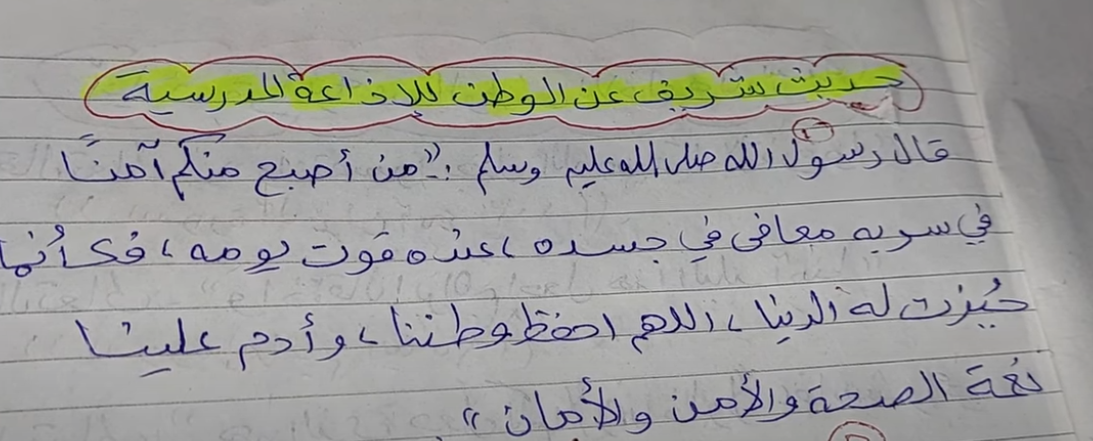 حديث شريف عن الوطن للإذاعة المدرسية
قال رسول الله صلى الله عليه وسلم : "من أصبح منكم آمنًا
في سربه معافى في جسده، عنده قوت يومه، فكأنما
حُيزت له الدنيا، اللهم احفظ وطننا، وأدم علينا
نعمة الصحة والأمن والأمان"